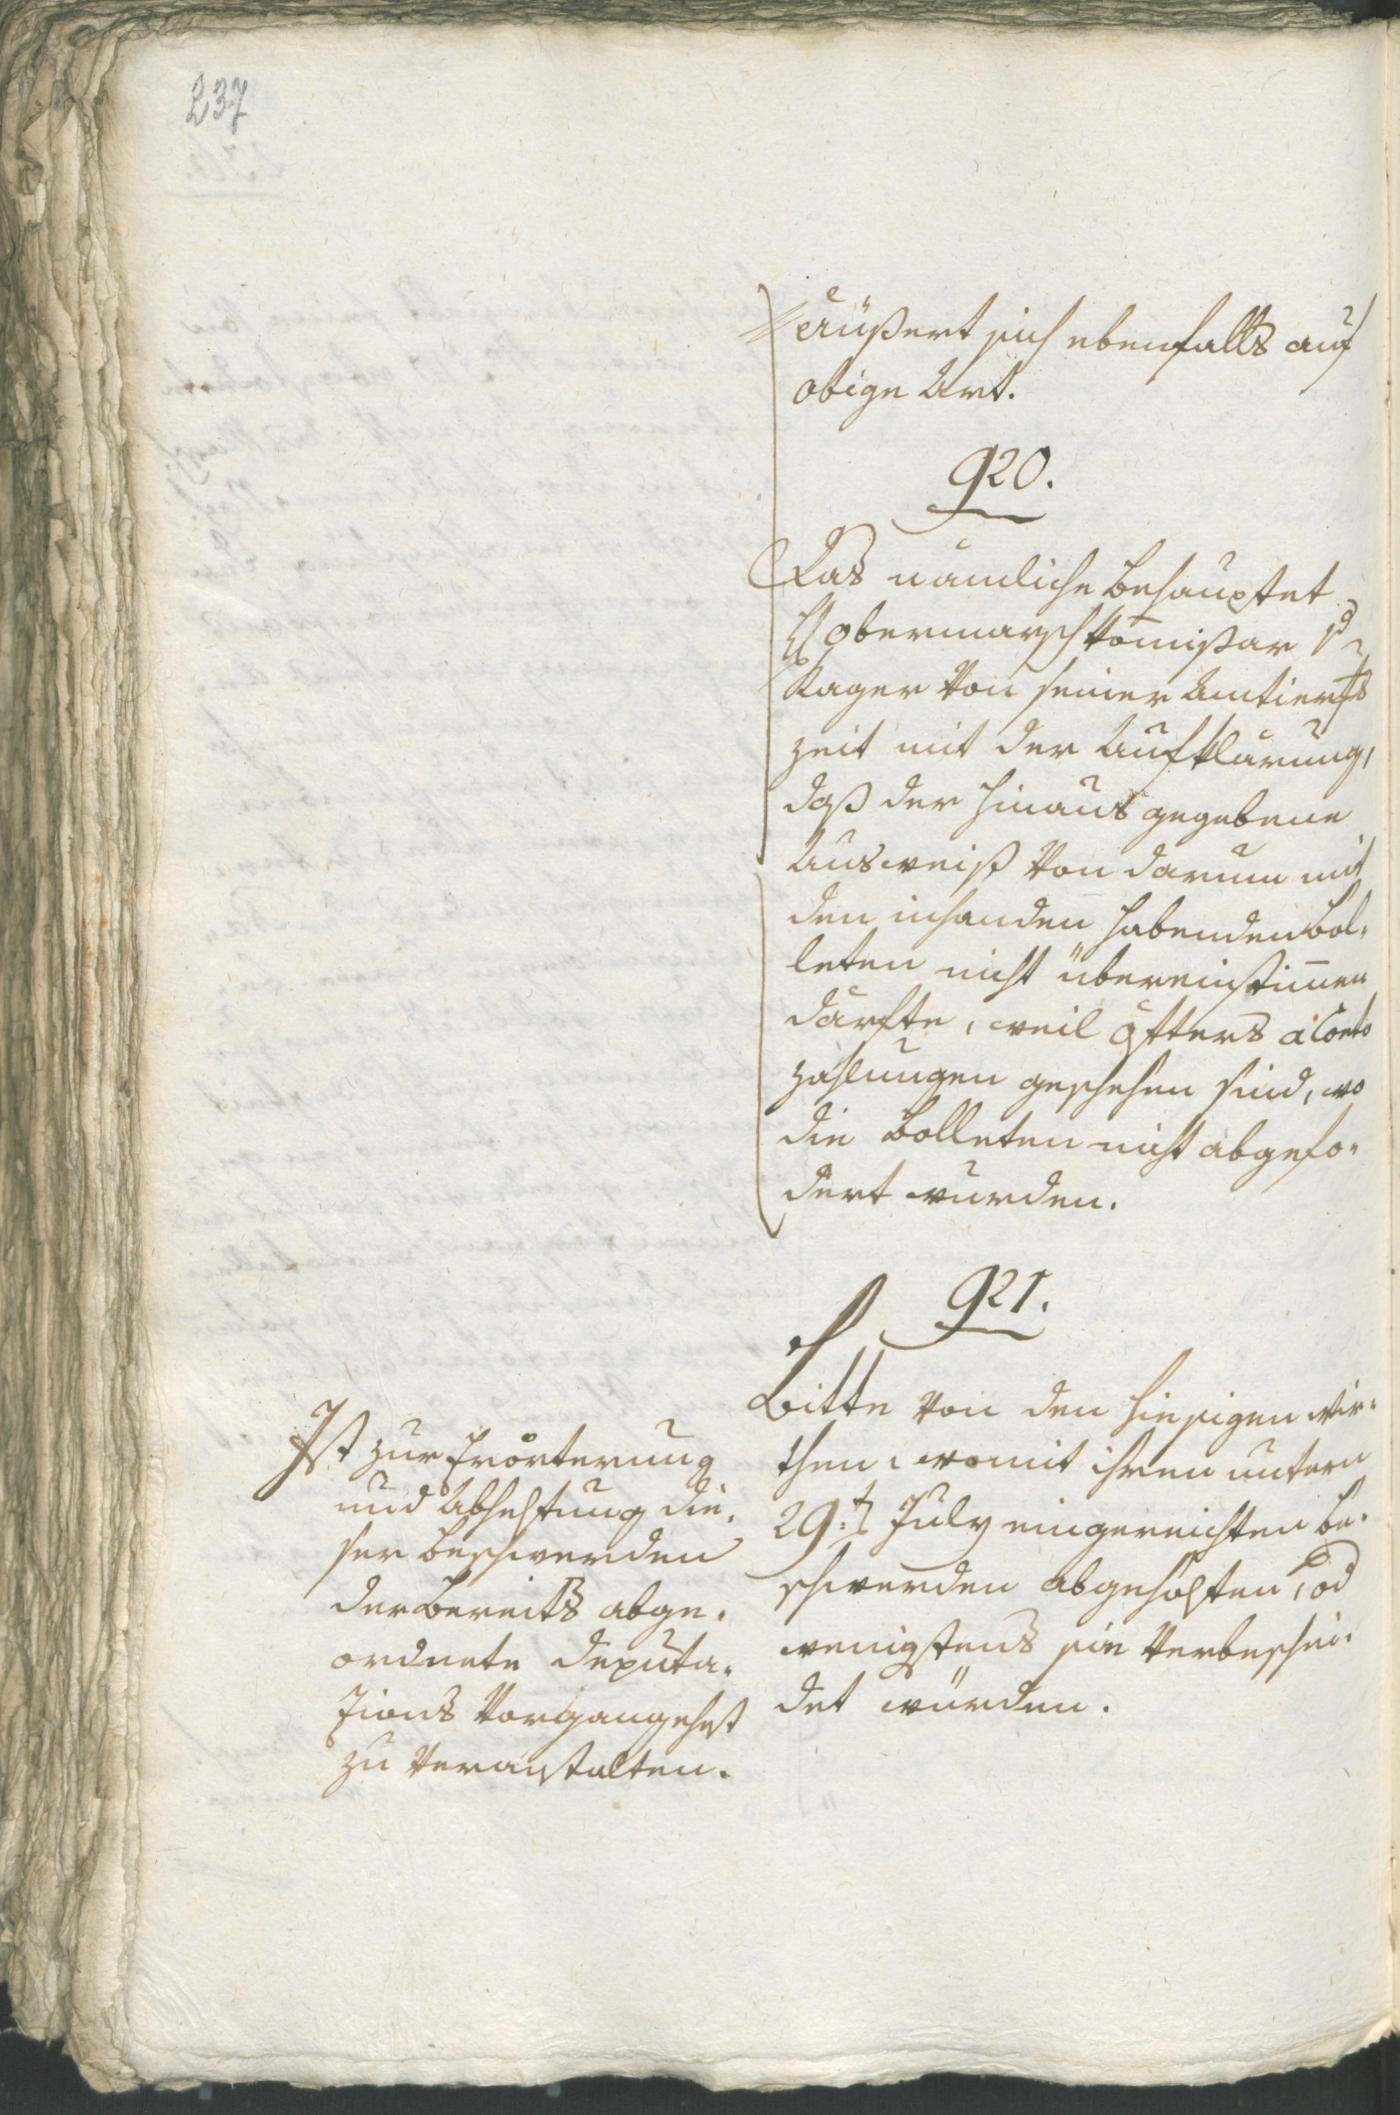 237
äußert sich ebenfalls auf
obige Art.
920.
Das nämliche behauptet
H Obermarschkom̄ißar v.
Kager von seiner Amtierungs
zeit mit der Aufklärung,
daß der hinaus gegebene
Ausweiß von darum mit
den inhanden habenden Bol-
leten nicht übereinstim̄en
därfte, weil öfters à Conto
zahlungen geschehen sind, wo
die Bolleten nicht abgefo-
dert wurden.
921.
Bitte von den hiesigen Wir-
then, womit ihren untern
29t July eingereichten Be-
schwerden abgeholfen, od
wenigstens sie verbeschei-
det würden.
Ist zur Erörterung
und Abhelfung die-
ser Beschwerden
der bereits abge-
ordnete Deputa-
zions Vorgang
zu veranstalten.